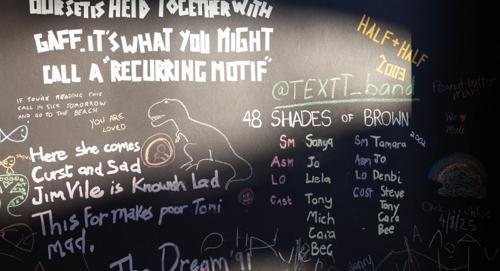 OUR SET IS HELD TOGETHER WITH
GAFF. IT'S WHAT YOU MIGHT
CALL A "RECURRING MOTIF"
HALF + HALF
2003
@TEXTT_band
IF YOU'RE READING THIS
CALL IN SICK TOMORROW
AND GO TO THE BEACH
YOU ARE
LOVED
Here she comes
Curst and Sad
Jim Vile is Knowish Lad
This For makes poor Toni
mad.
The Dream
48 SHADES OF BROWN
2004
Sm Sanya
Asm Jo
LO Liela
Cast Tony
Mich
Cara
Bec
Sm Tamara
Asm Jo
LO Denbi
Cast Steve
Tony
Cara
Bec
We ♥